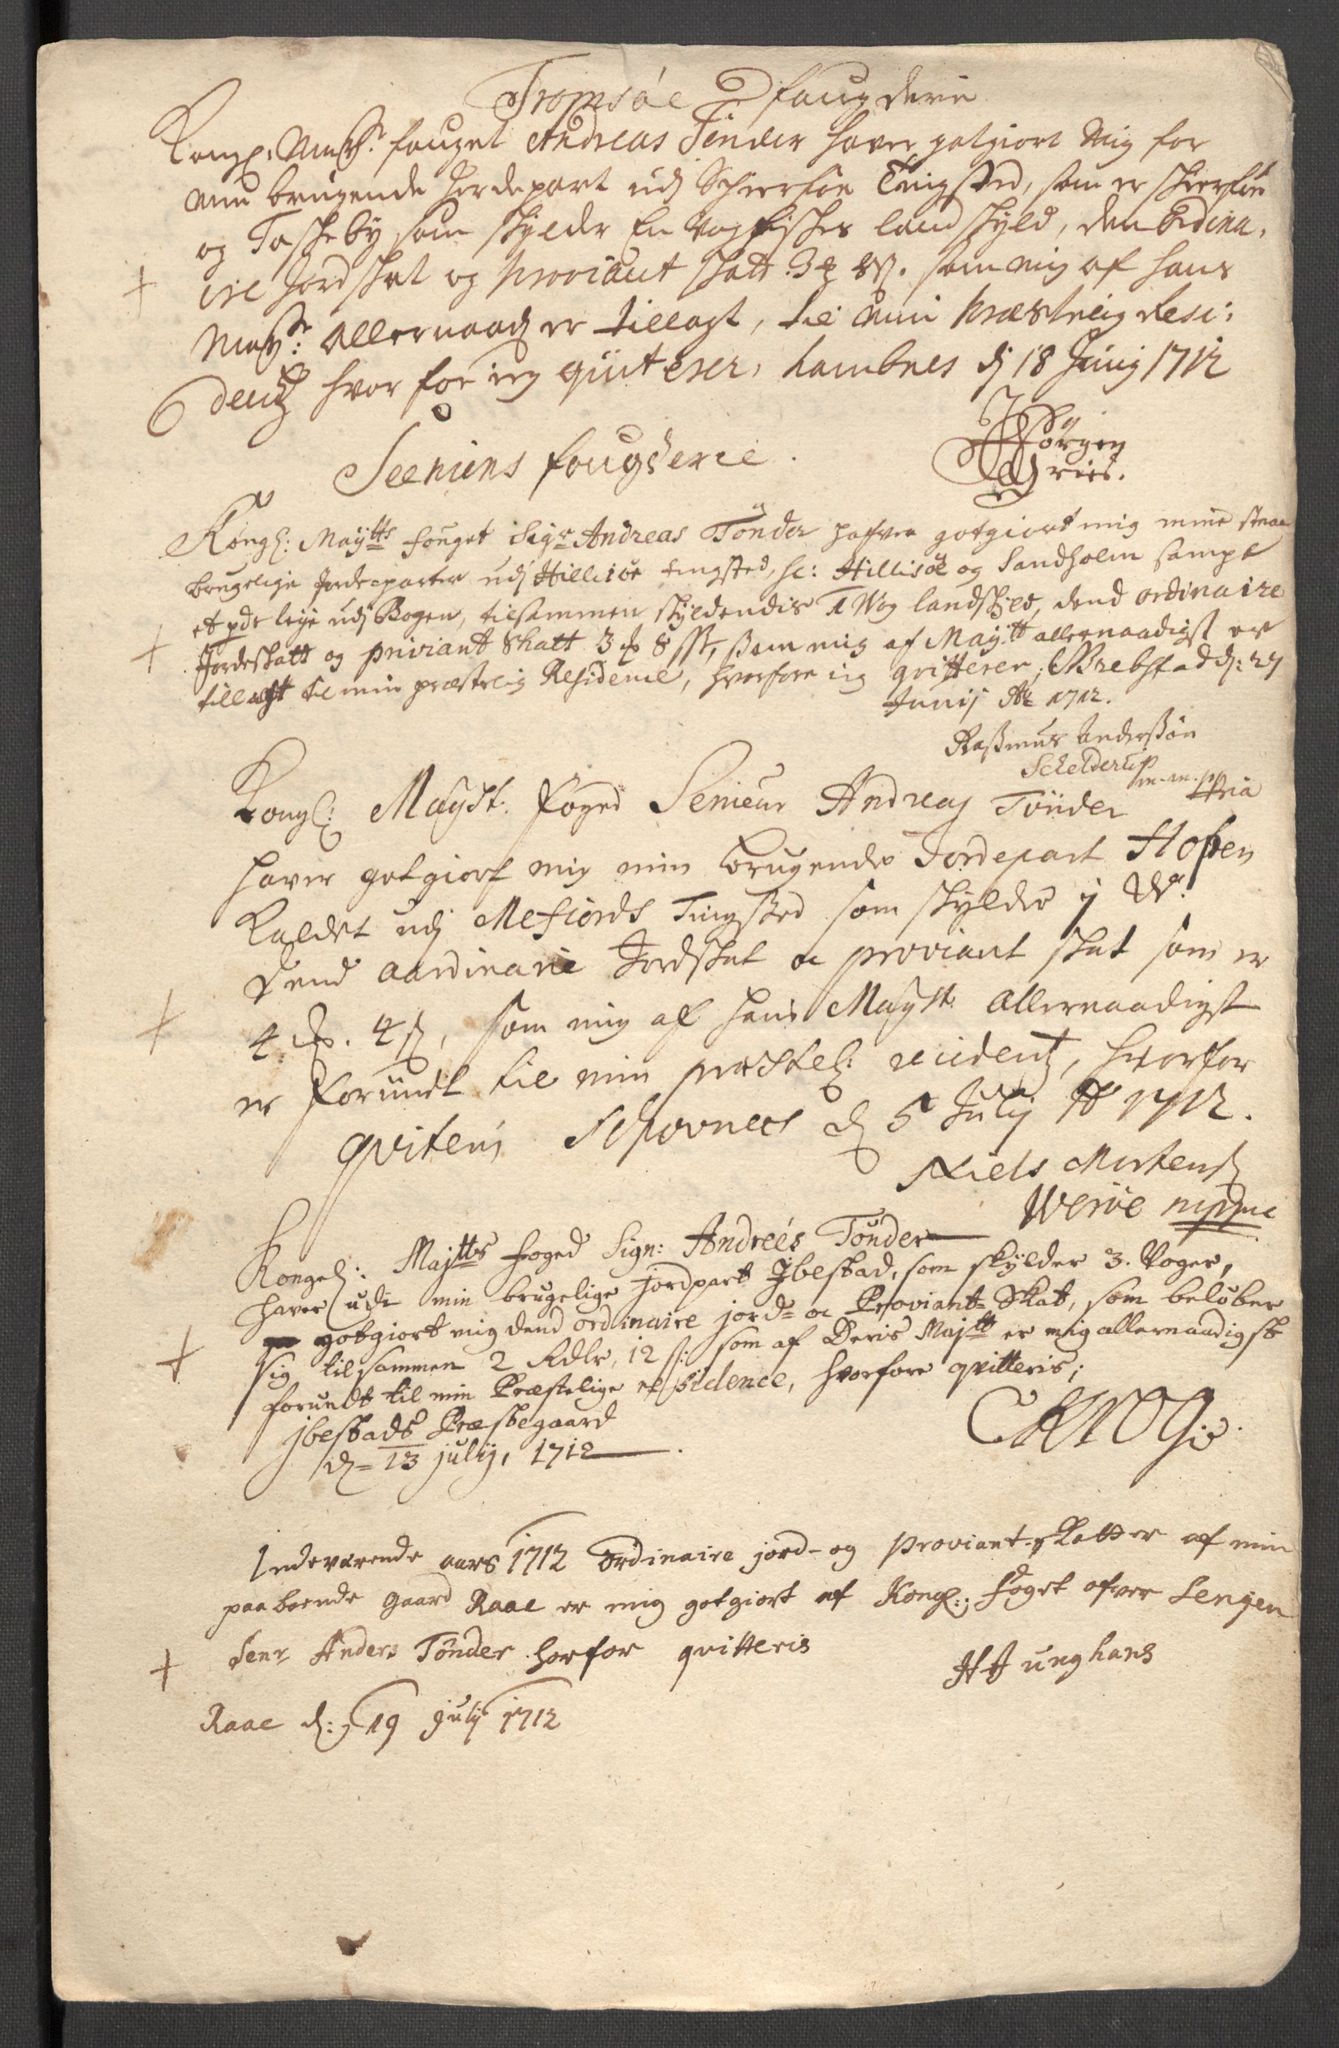 Tromsøe faugderie
Kongl: Maysts. fauget Andreas Tønder haver gotgiort Mig for
min brugende Jordepart udj Schierføe Tingsted, som er Schierføe
og Tascheby som skylder En vog fisches landskyld, den ordina,
ire Jordskat og Proviant skatt 3 8 s. som mig af hans
Mayst: allernaadj er tillagt, til min Præstelig Resi:
dentz hvor for ieg quiterer, hambnes dj 18 Junij 1712
Jørgen
Friis.
Seeniens fougderie.
Kongl: Maytts fouget Sigr Andreas Tønder hafver gotgiort mig mine
brugelige Jordeparter udj Hillisøe tingsted, sc: Hillisøe og Sandholm sampt
et leye udj Bogen, tilsammen skyldendis 1 Wog landskyld, dend ordinaire
Jordeskatt og proviant Skatt 3 8 s, som mig af May:tt allernaadigst er
tillagt til min præstelig Residence, hvorfore ieg qvitterer, d: 27
Junij Ao 1712.
Rasmus Anderssøn
Schelderup
m. m. ppria
Kongl: Mayst. foged Senieur Andreas Tønder
haver gotgiort mig min brugende Jordepart Hofen
Kaldet udj Mefiords Tingsted som skylder j W.
Dend aardinarie Jordskat oc proviant skat som er
4. 4 s, som mig af hans Mayst: allernaadigst
er forundt til min præstel: residentz, hvorfor
qviteris d 5 Julij Ao 1712.
Niels Mortens
Werøe mppria
Kongel: Majtts foged Sign: Andrees Tønder
haver udi min brugelige jordpart Jbestad, som skylder 3. Voger,
gotgiort mig dend ordinaire jord= oc Proviant=Skat, som beløber
sig tilsammen 2 Rdlr, 12 s: som af Deris Majtt er mig allernaadigst
forundt til min Præstelige residence, hvorfore qvitteris;
Jbestads Præstegaard
d= 13 julij, 1712
CKrog
Indeværende aars 1712 ordinaire jord- og proviant-skatter af min
paaboende gaard Raae er mig gotgiort af Kongl: foget ofver Senjen
Senr Anders Tønder. horfor qvitteris
H Junghans
Raae d: 19 Julij 1712